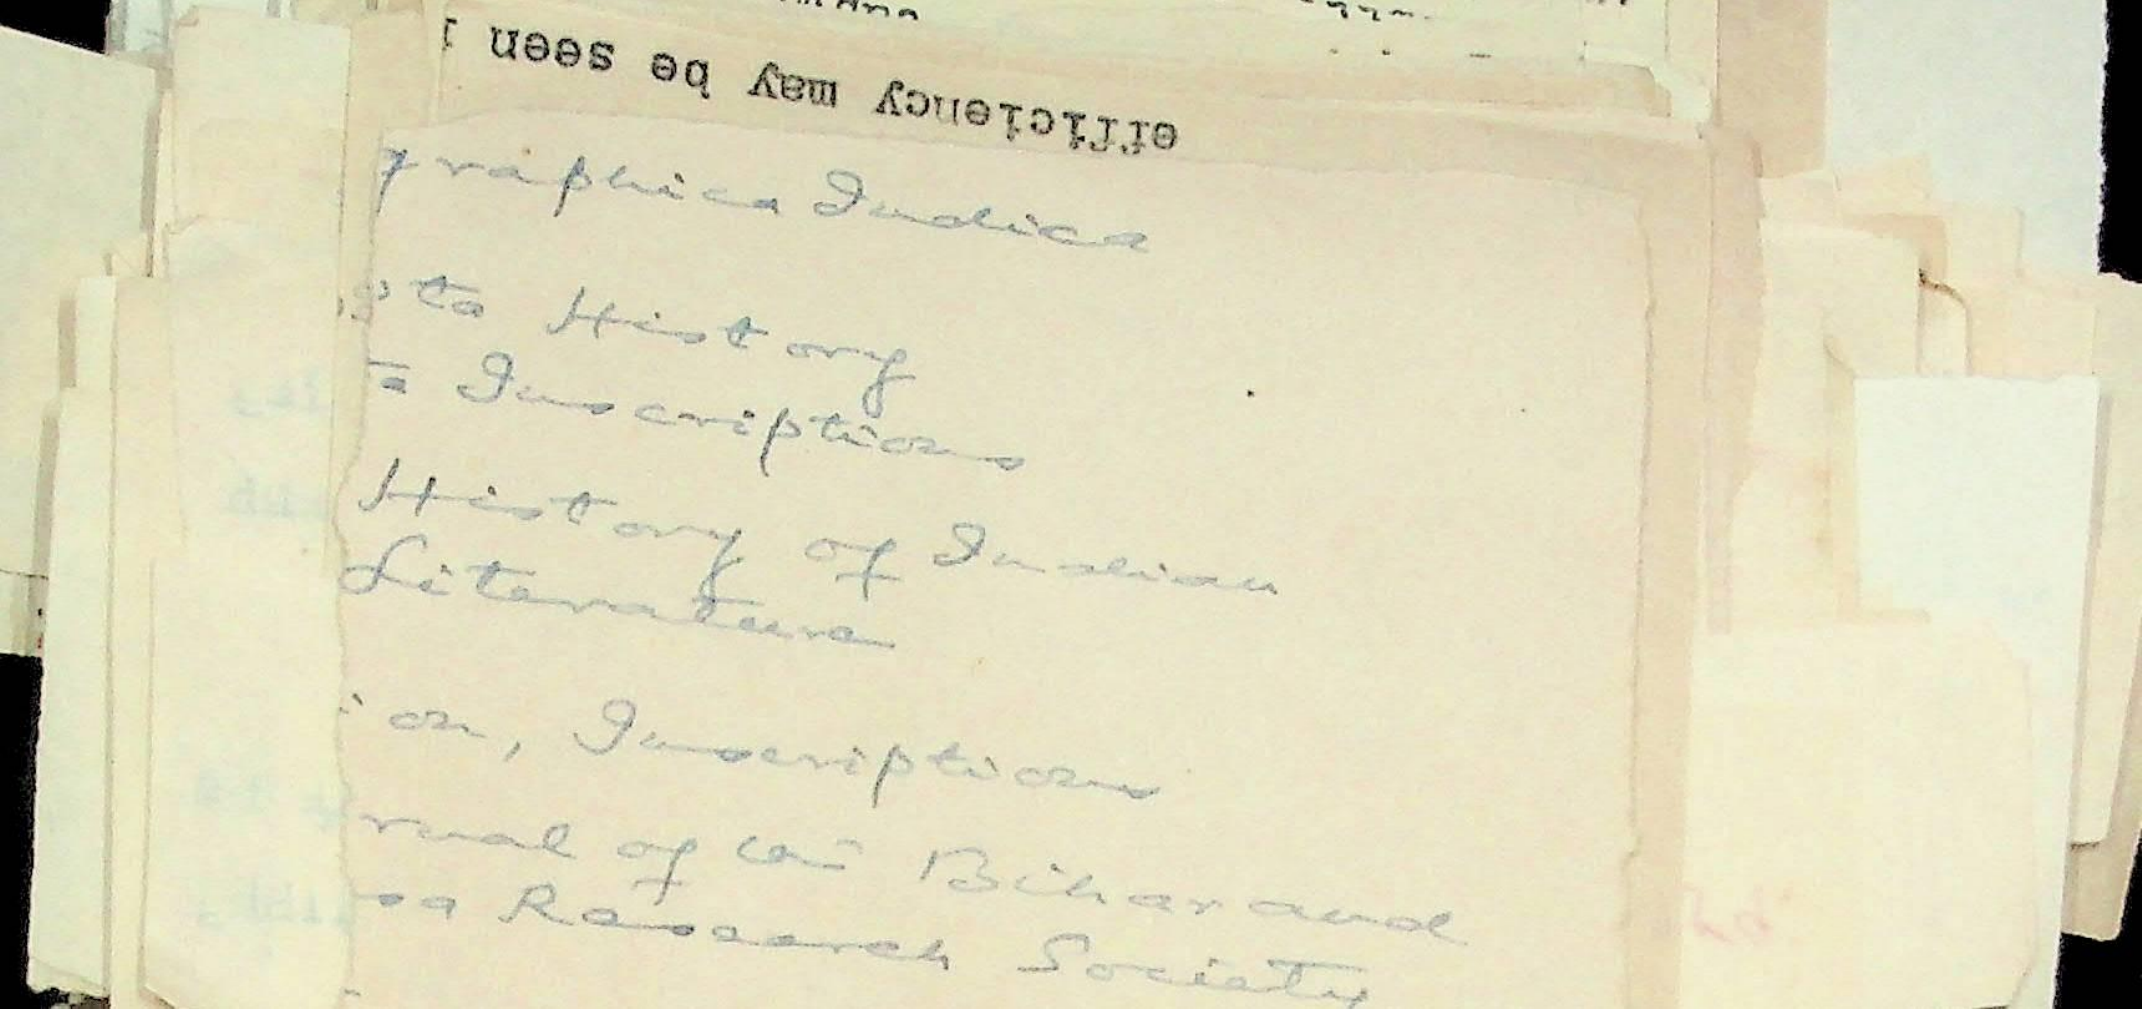 efficiency may be seen
graphica Indica
to History
Inscriptions
History of Indian
Literature
on, Inscriptions
rnal of the Bihar and
sa Research Society